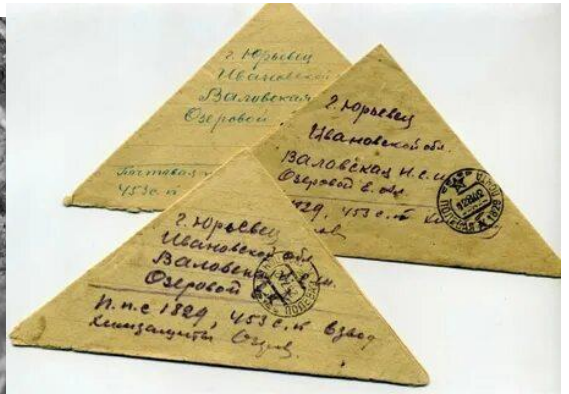 г. Юрьевец
Ивановской
Валовская
Озеровой
Почтовая
453 с.п
г. Юрьевец
Ивановской обл.
Валовская н.с.ш
Озеровой
1829, 453 с.п
ПОЛЕВАЯ ПОЧТА
г. Юрьевец
Ивановской обл.
Валовская
Озеровой
П.п.с 1829, 453 с.п взвод
химзащиты
ПОЛЕВАЯ